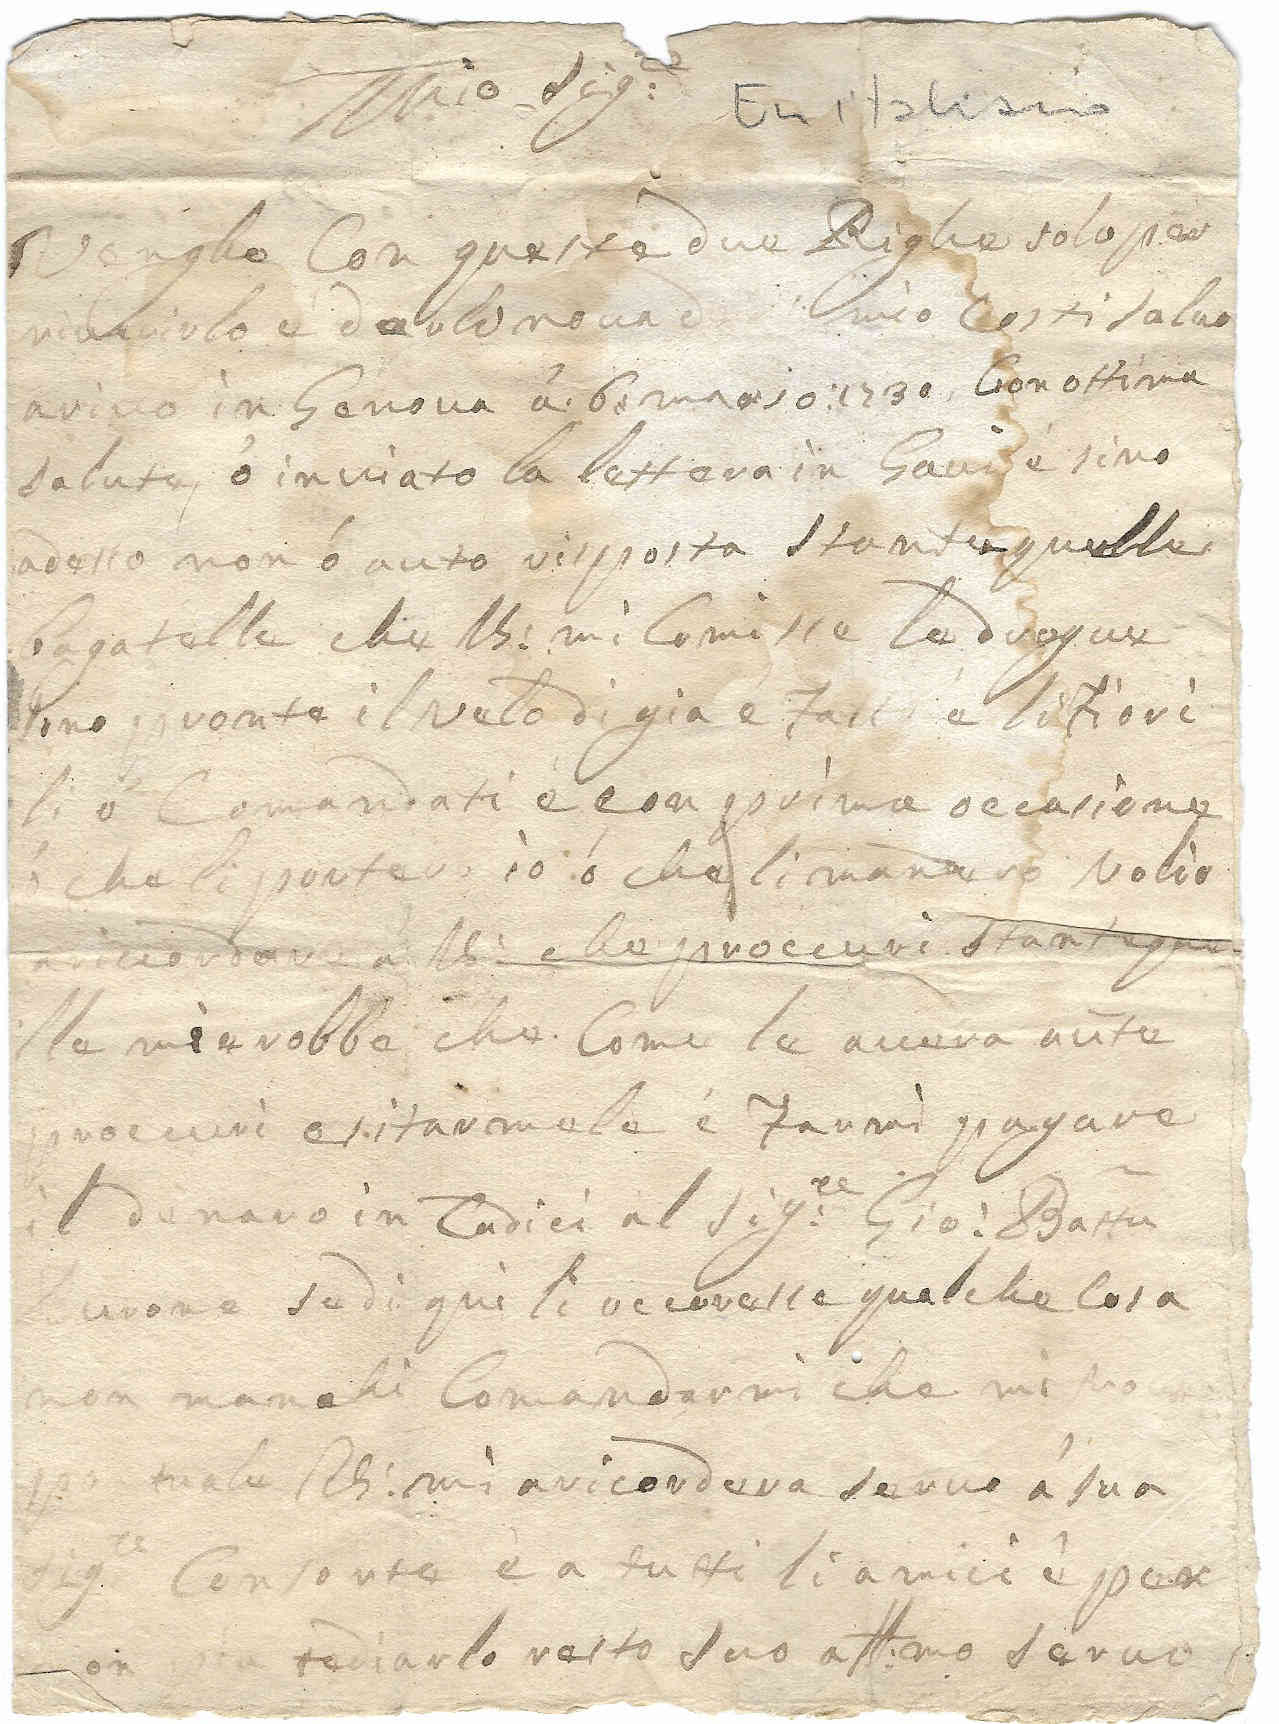 Mio Sig:re
En italiano
Vengho Con queste due Righe solo per
riverirlo é darli nova del mio Costi salvo
arivo in Genova á 6: marso: 1730. Con ottima
salute, ó inviato la lettera in Gavi é sino
adesso non ó auto risposta stante quelle
bagatelle che VS: mi Comisse le drogue
sono pronte il velo di gia é fatto é li fiori
li ó Comandati é con prima occasione
ó che li portero io ó che li mandero volio
aricordare á VS: che proccuri stante que
lle mie robbe che Come le avera aute
proccuri esitarmele é farmi pagare
il denaro in Cadici al Sig:re Gio: Batta
se di qui li occoresse qualche Cosa
non manchi Comandarmi che mi
pontuale VS: mi aricordera servo á sua
Sig:re Consorte é a tutti li amici é per
non piu tediarlo resto suo aff:mo servo